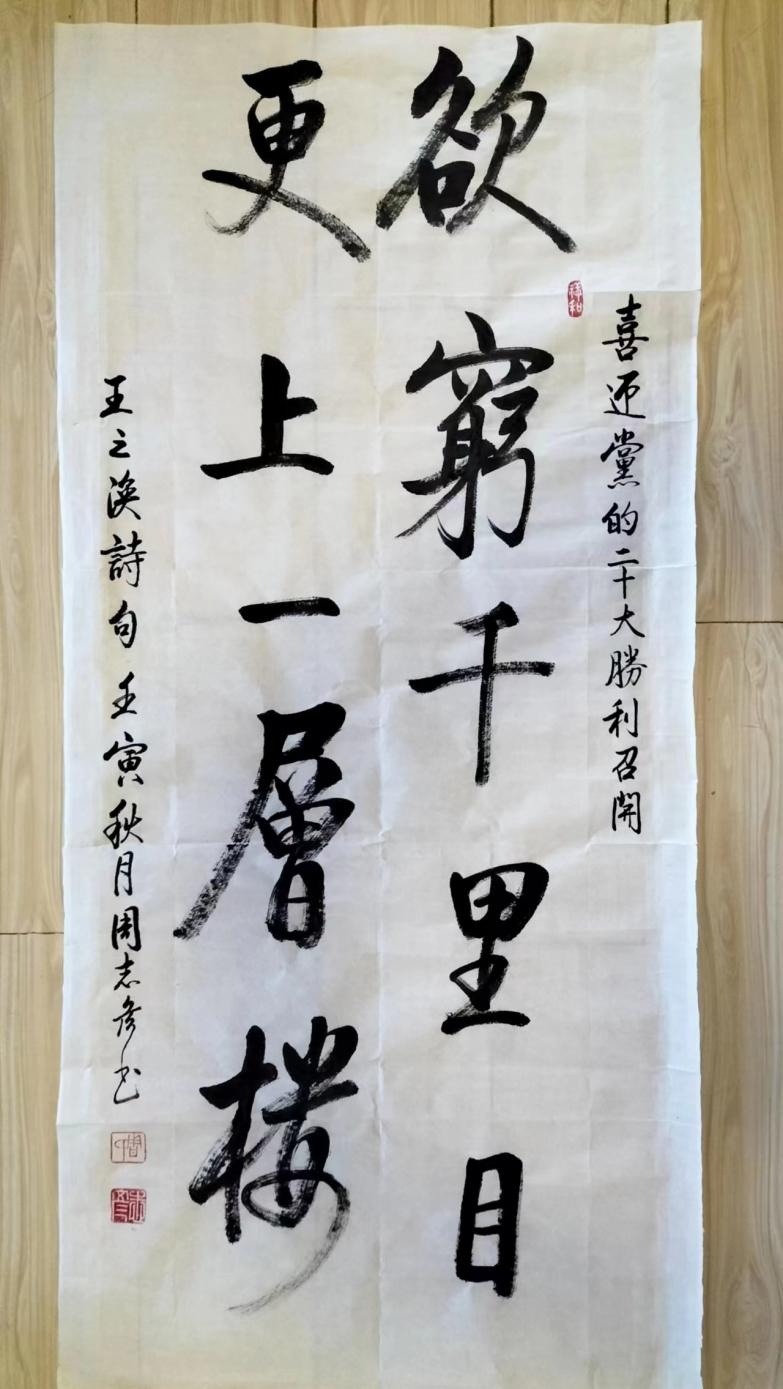 喜迎黨的二十大勝利召開
祥和
欲窮千里目
更上一層樓
王之渙詩句 壬寅秋月周志彦书